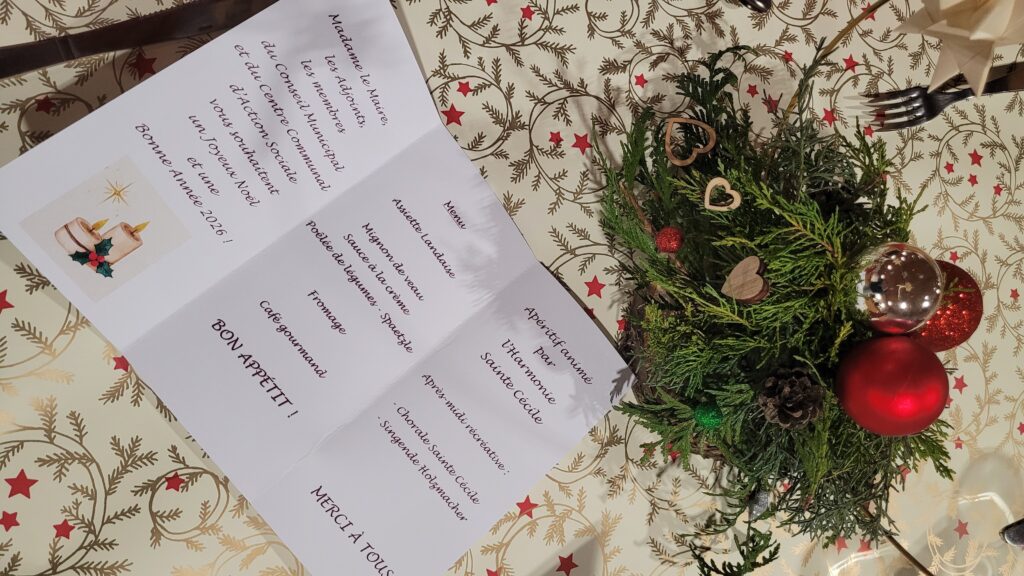 Madame le Maire,
les Adjoints,
les membres
du Conseil Municipal
et du Centre Communal
d'Actions Sociale
vous souhaitent
un Joyeux Noël
et une
Bonne Année 2026 !
Menu
Assiette Landaise
Mignon de veau
Sauce à la crème
Poêlée de légumes - Spaetzle
Fromage
Café gourmand
BON APPETIT !
Apéritif animé
par
l'Harmonie
Sainte Cécile
Après-midi récréative :
- Chorale Sainte Cécile
- Singende Holzmacher
MERCI À TOUS